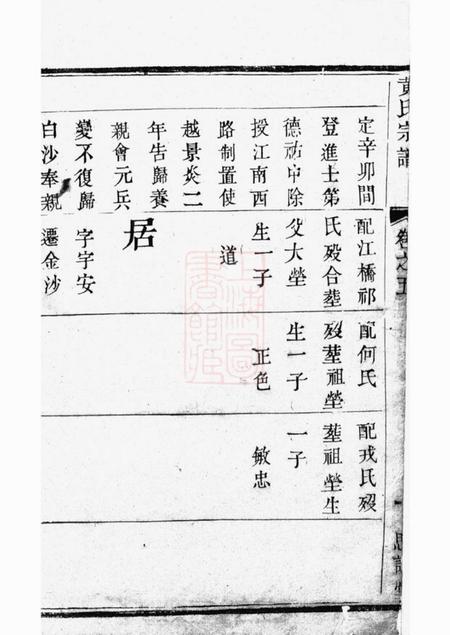 黃氏宗譜
卷之五
定辛卯間
登進士第
德祐中除
授江南西
路制置使
越景炎二
年吿歸養
親會元兵
變不復歸
白沙奉親
配江橋祁
氏歿合葬
父大塋
生一子
道
居
字宇安
遷金沙
配何氏
歿塟祖塋
生一子
正色
配戎氏歿
塟祖塋生
一子
敏忠